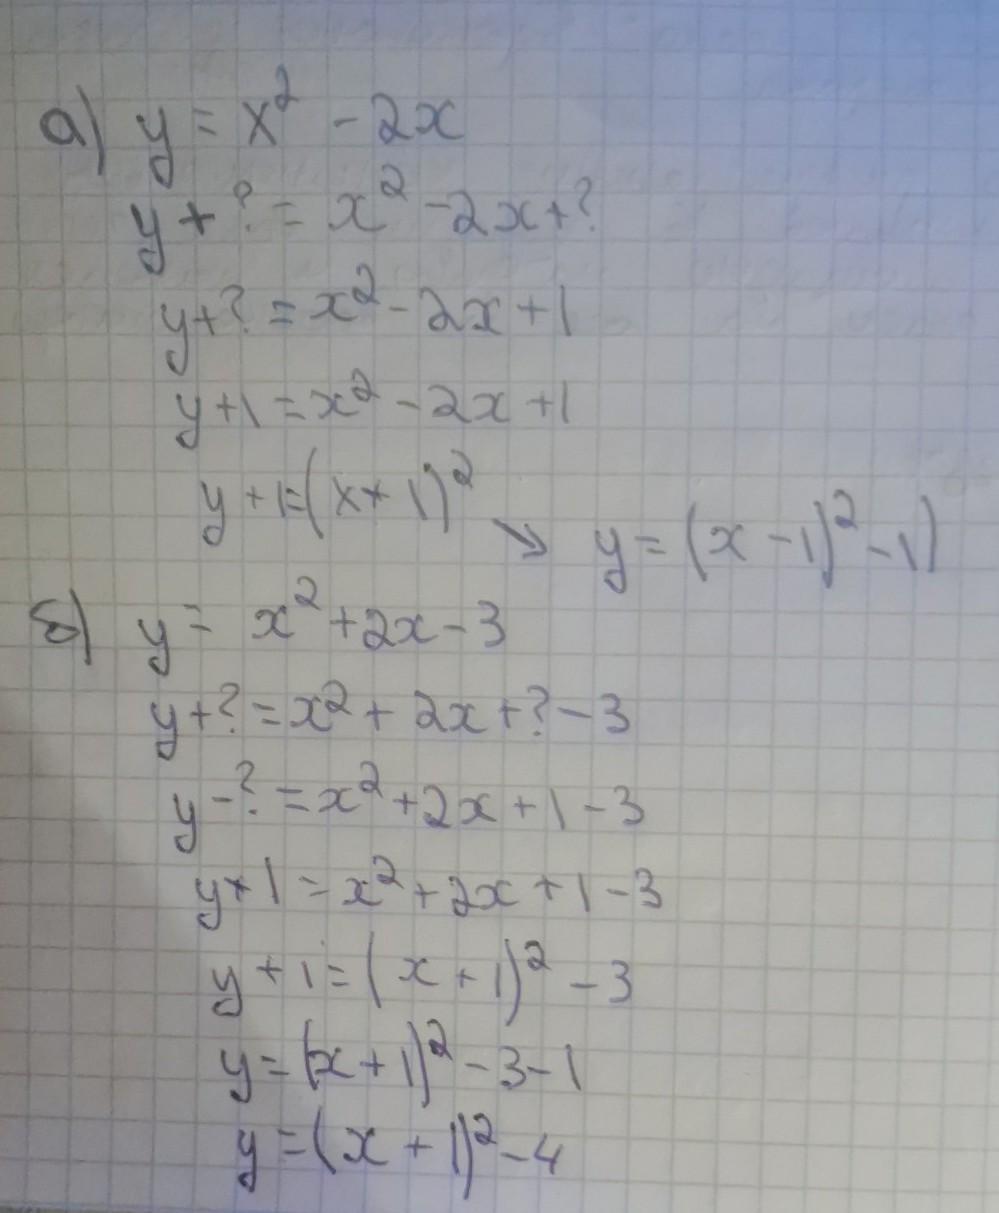 а) y = x² - 2x
y + ? = x² - 2x + ?
y + ? = x² - 2x + 1
y + 1 = x² - 2x + 1
y + 1 = (x + 1)² ↘ y = (x - 1)² - 1)
б) y = x² + 2x - 3
y + ? = x² + 2x + ? - 3
y - ? = x² + 2x + 1 - 3
y + 1 = x² + 2x + 1 - 3
y + 1 = (x + 1)² - 3
y = (x + 1)² - 3 - 1
y = (x + 1)² - 4